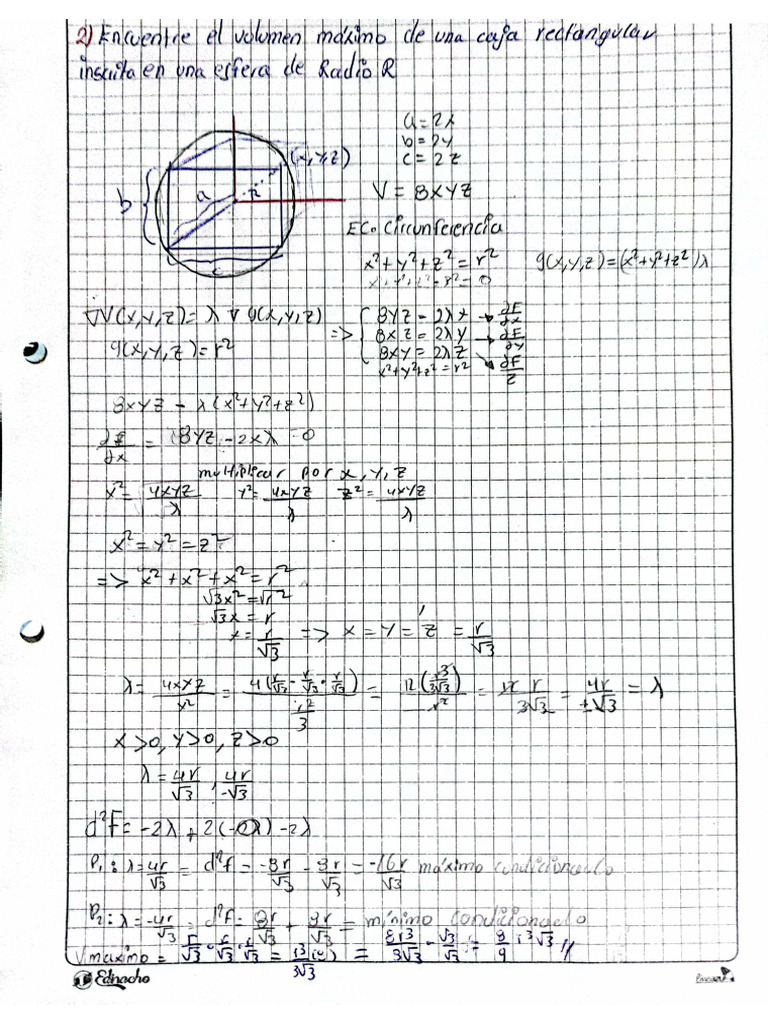 2) Encuentre el volumen máximo de una caja rectangular
inscrita en una esfera de Radio R
a = 2x
b = 2y
c = 2z
(x,y,z)
b
a
r
c
V = 8XYZ
EC. Circunferencia
x²+y²+z² = r²    g(x,y,z)=(x²+y²+z²)λ
∇V(x,y,z) = λ∇g(x,y,z)
g(x,y,z) = r²
=> { 8YZ = 2λx → ∂F/∂x
8XZ = 2λy → ∂F/∂y
8XY = 2λZ → ∂F/Z
x²+y²+z² = r²
8XYZ - λ(x²+y²+z²)
∂F/∂x = 8YZ - 2xλ = 0
multiplicar por x, y, z
x² = 4XYZ/λ   y² = 4XYZ/λ   z² = 4XYZ/λ
x² = y² = z²
=> x² + x² + x² = r²
√3x² = √r²
√3x = r
x = r/√3 => x = y = z = r/√3
λ = 4XYZ/x² = 4(r/√3 · r/√3 · r/√3)/(r²/3) = 12(r³/3√3)/r² = 12 r/3√3 = 4r/±√3 = λ
X>0, Y>0, Z>0
λ = 4r/√3, 4r/-√3
d²F = -2λ + 2(-λ) - 2λ
P₁: λ = 4r/√3 = d²f = -8r/√3 - 8r/√3 = -16r/√3 máximo condicionado
P₂: λ = -4r/√3 = d²f = 8r/√3 + 8r/√3 = mínimo condicionado
Vmaximo = r/√3 · r/√3 · r/√3 = r³(8)/3√3 = 8r³/3√3 · √3/√3 = 8/9 r³√3 //
Ednacho